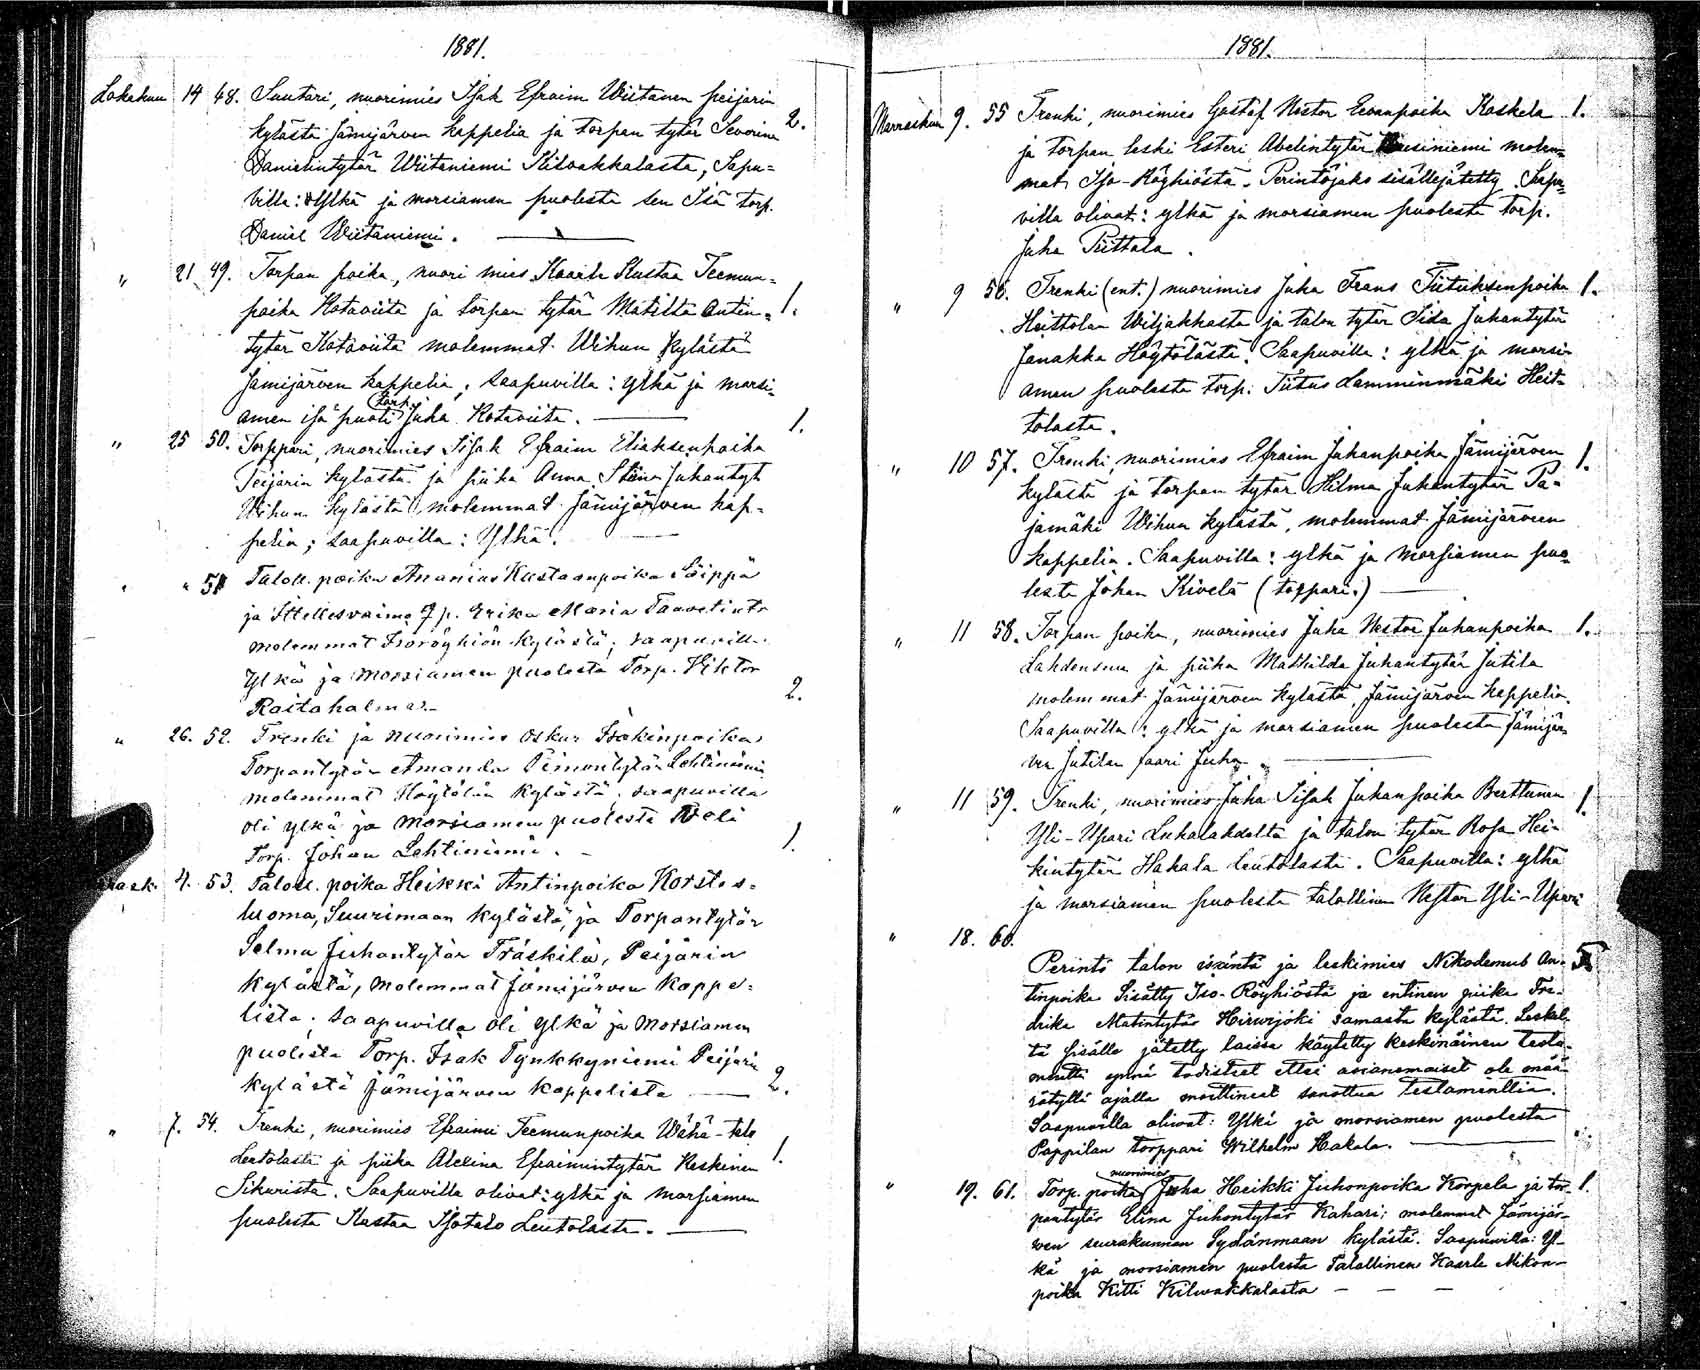 1881.
Lokakuu 14 48. Suutari, nuorimies Isak Efraim Wiitanen Peijarin
kylästä Jämijärven kappelia ja torpan tytär Severina 2.
Danielintytär Wiitaniemi Kilvakkalasta, Sapu=
villa: Ylkä ja morsiamen puolesta sen Isä torp.
Daniel Wiitaniemi.
" 21 49. Torpan poika, nuori mies Kaarle Kustaa Teemun=
poika Kataviita ja torpan tytär Matilta Antin= 1.
tytär Kataviita molemmat Wihun kylästä
Jämijärven kappelia, saapuvilla: ylkä ja morsi=
amen isä puoli torp. Juha Kotaviita.
" 25 50. Torppari, nuorimies Iisak Efraim Eliaksenpoika 1.
Peijarin kylästä ja piika Anna Stiina Juhantyt
Wihun kylästä molemmat Jämijärven kap=
pelia; saapuvilla: Ylkä.
" " 51 Taloll. poika Ananias Kustaanpoika Säippä
ja Ittellesvaimo Erika Maria Taavetintr
molemmat Isoröyhiön kylästä; saapuvilla
ylkä ja morsiamen puolesta Torp. Viktor
Raitahalmas. 2.
" 26. 52. Trenki ja nuorimies Oskar Isakinpoika
Torpantytär Amanda Simontytär Lehtiniemi
molemmat Höytölän kylästä, saapuvilla
oli ylkä ja morsiamen puolesta
Torp. Johan Lehtiniemi. 1.
4. 53. Taloll. poika Heikki Antinpoika Korstes=
luoma, Suurimaan kylästä, ja Torpantytär
Selma Juhantytär Träskilä, Peijarin
kylästä, molemmat Jämijärven kappe=
lista; saapuvilla oli ylkä ja morsiamen
puolesta Torp. Isak Tynkkyniemi Peijarin
kylästä Jämijärven kappelista 2.
" 7. 54. Trenki, nuorimies Efraimi Teemunpoika Wähä-talo
Leutolasta ja piika Alexina Efraimintytär Keskinen 1.
Sikurista. Saapuvilla olivat: ylkä ja morsiamen
puolesta Kustaa Isotalo Leutolasta.
1881.
Marraskuu 9. 55 Trenki, nuorimies Gustaf Nestor Eevanpoika Koskela 1.
ja torpan leski Esteri Abelintytär molem=
mat Iso-Röyhiöstä. Perintöjako sisällejätetty. Saapu=
villa olivat: ylkä ja morsiamen puolesta torp.
Juha Piittala.
" 9 56. Trenki (ent.) nuorimies Juha Frans Tiituksenpoika 1.
Heittolan Wiljakkasta ja talon tytär Iida Juhantytär
Janakka Höytölästä. Saapuvilla: ylkä ja morsi=
amen puolesta torp. Tiitus Lamminmäki Heit=
tolasta.
" 10 57. Trenki, nuorimies Efraim Juhanpoika Jämijärven 1.
kylästä ja torpan tytär Hilma Juhantytär Pa=
jamäki Wihun kylästä, molemmat Jämijärven
kappelia. Saapuvilla: ylkä ja morsiamen puo=
lesta Johan Kivelä (toppari.)
" 11 58. Torpan poika, nuorimies Juha Nestor Juhanpoika 1.
Lahdensuu ja piika Mathilda Juhantytär Jutila
molemmat Jämijärven kylästä, Jämijärven kappelia.
Saapuvilla: ylkä ja morsiamen puolesta Jämijär
ven Jutilan faari Juha.
" 11 59. Trenki, nuorimies Juha Iisak Juhanpoika Berttunen 1.
Yli-Upari Luhalahdelta ja talon tytär Rosa Hei=
kintytär Hakala Leutolasta. Saapuvilla: ylkä
ja morsiamen puolesta talollinen Nestor Yli-Upari
" 18. 60.
Perintö talon isäntä ja leskimies Nikodemus An=
tinpoika Sisätty Iso-Röyhiöstä ja entinen piika Fre=
drika Matintytär Hirwijoki samasta kylästä. Leskel=
tä sisälle jätetty laissa käytetty keskinäinen testa=
mentti ynnä todistiet ettei asianomaiset ole mää=
rätyllä ajalla moittineet sanottua testamenttia.
Saapuvilla olivat: Ylkä ja morsiamen puolesta
Pappilan torppari Wilhelm Hakala.
" 19. 61. Torp. poika nuorimies Juha Heikki Juhonpoika Korpela ja tor= 1.
pantytär Elina Juhontytär Kahari; molemmat Jämijär=
wen seurakunnan Sydänmaan kylästä. Saapuwilla: Yl=
kä ja morsiamen puolesta Talollinen Kaarle Mikon=
poika Kitti Kilwakkalasta